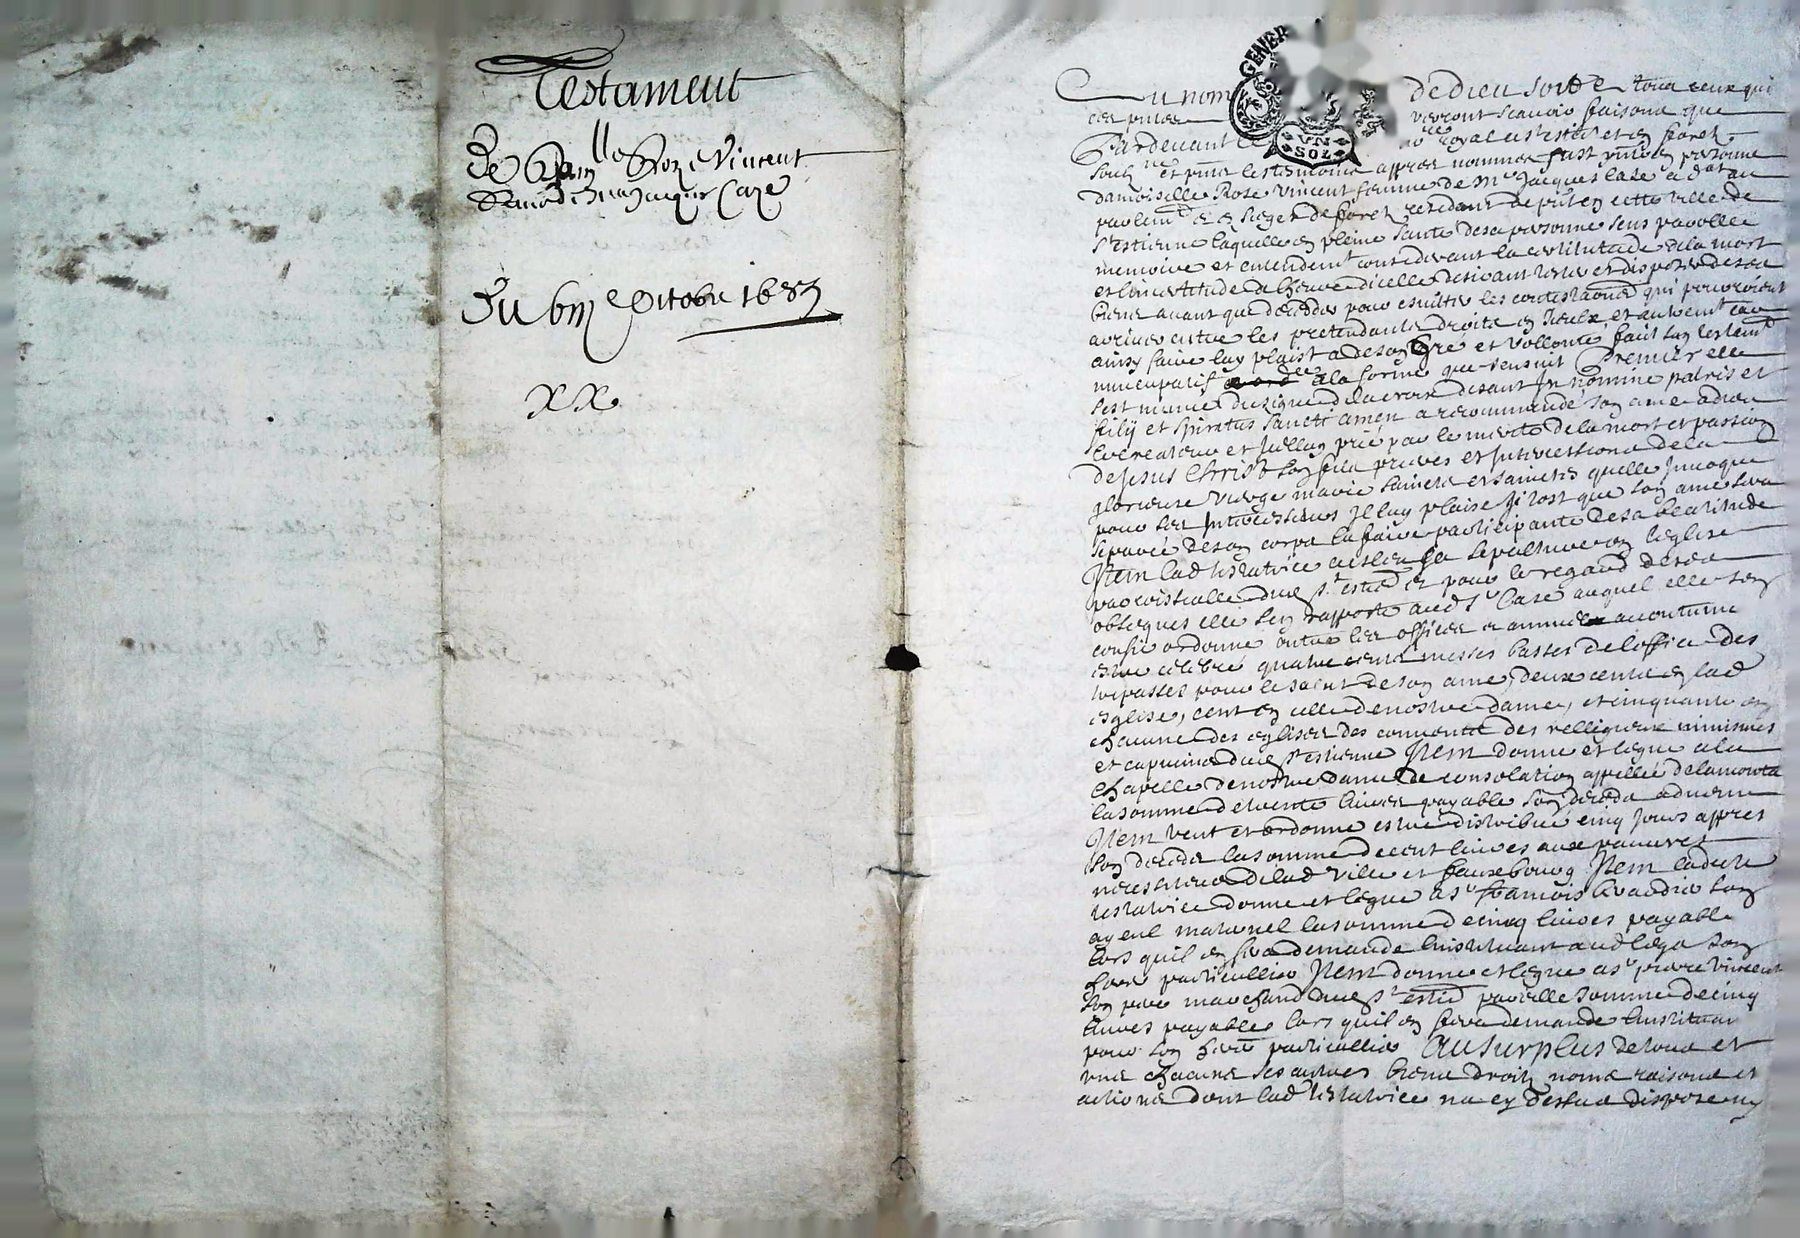 Testament
De Dam<sup>lle</sup> Roze Vincent
femme de Me Jacques Caze
Du 6me Octobre 1683
XX
GENER
UN SOL
Au nom de Dieu soit tous ceux qui
ces pntes verront scavoir faisons que
Pardevant le no<sup>re</sup> royal a St Estie et en forest
soubz<sup>ne</sup> et pnts les tesmoins appres nommes fust pnte en personne
damoiselle Roze Vincent femme de Me Jacques Caze ad<sup>at</sup> au
parlem<sup>t</sup> et siege de forest residant de pnt en cette ville de
St Estienne laquelle en pleine sante de sa personne sens parolle
memoire et entendem<sup>t</sup> considerant la certitude de la mort
et lincertitude de lheure dicelle desirant tester et disposer de ses
biens avant que deceder pour esviter les contestaons qui pourroient
arriver entre les pretendants droits en iceulx et autrem<sup>t</sup> car
ainsy faire luy plaist a de son gre et vollonte fait son testam<sup>t</sup>
nuncupatif a la forme que sensuit Premier elle
sest munie du signe de la croix disant In nomine patris et
filij et spiritus sancti amen a recommande son ame a dieu
le createur et Icelluy prie par le merite de la mort et passion
de Jesus Christ son fils prieres et Intercessions de la
glorieuse vierge marie saincts et sainctes quelle Invoque
pour ses Intercesseurs Il luy plaise sitost que son ame sera
separee de son corps la faire participante de sa beatitude
Item lad testatrice a esleu sa sepulture en leglise
parroissialle dud St Estie et pour le regard de ses
obseques elle sen rapporte aud Sr Caze auquel elle sen
confie ordonne outre les offices a accoutume
estre celebre quatre cents messes basses de loffice des
trepasses pour le salut de son ame, deux cents en lad
esglise, cent en celle de nostre dame, et cinquante en
chacune des eglises des couvents des relligieux minimes
et capucins dud St Estienne Item donne et legue a la
chapelle de nostre dame de consolation appellee de la
la somme de trente livres payable son deceds advenu
Item veut et ordonne estre distribue cinq jours appres
son deceds la somme de cent livres aux pauvres
necessiteux de lad ville et fauxbourg Item ladite
testatrice donne et legue a Sr francois son
ayeul maternel la somme de cinq livres payable
lors quil en fera demande linstituant aud lega son
here particullier Item donne et legue a Sr pierre Vincent
son pere marchand dud St Estie parelle somme de cinq
livres payable lors quil en fera demande linstituant
pour son here particullier Au surplus de tous et
uns chacuns ses autres biens droits noms raisons et
actions dont lad testatrice na cy dessus dispose ny